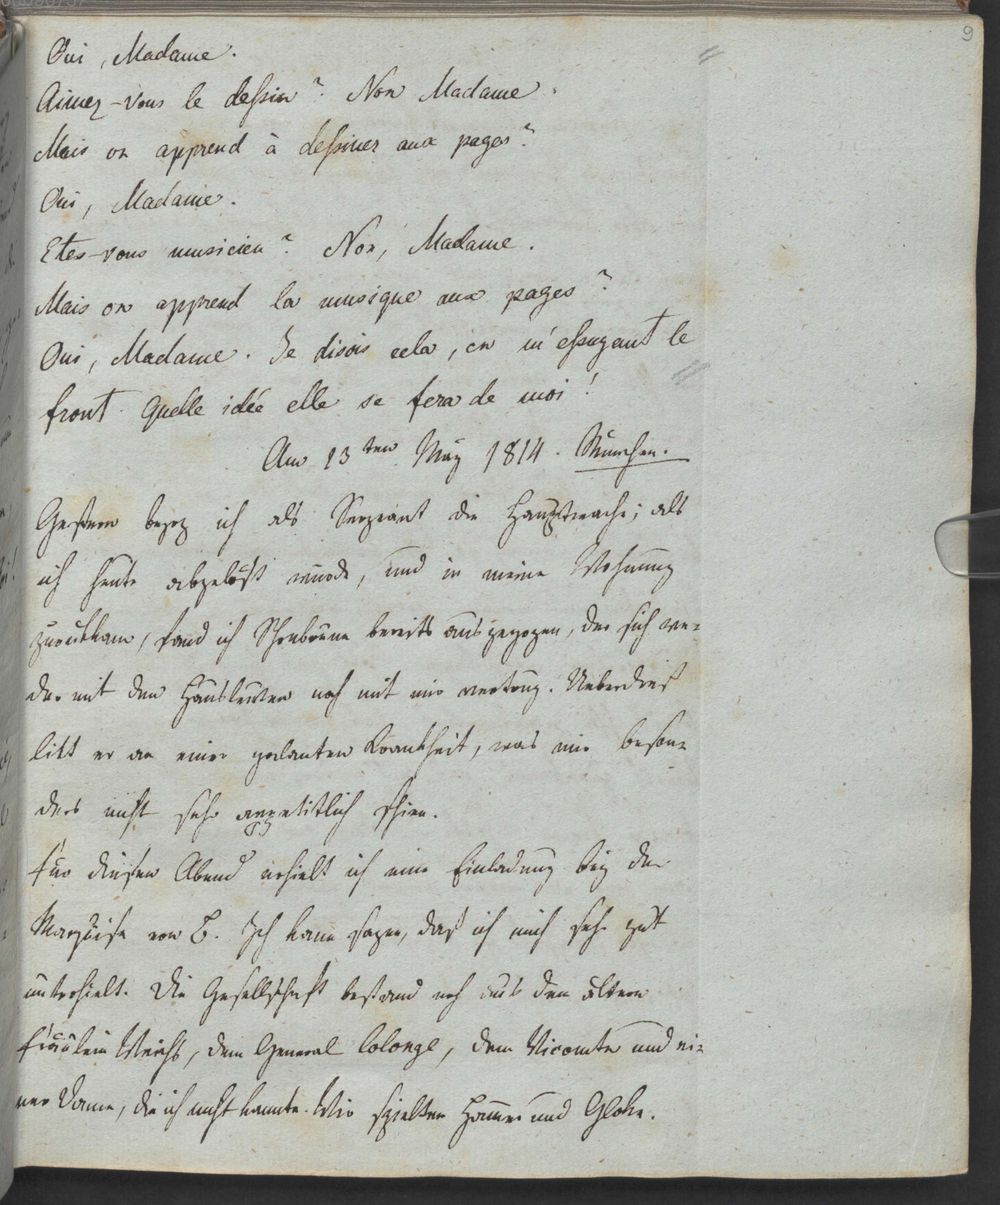 9
Oui, Madame.
Aimez-vous le dessin? Non Madame.
Mais on apprend à dessiner aux pages?
Oui, Madame.
Etes-vous musicien? Non, Madame.
Mais on apprend la musique aux pages?
Oui, Madame. Je disois cela, en m'essuyant le
front. Quelle idée elle se fera de moi!
Am 13ten May 1814. München.
Gestern bezog ich als Sergeant die Hauptwache; als
ich heute abgelößt wurde, und in meine Wohnung
zurückkam, fand ich Schonbrunn bereits ausgezogen, der sich we-
der mit den Hausleuten noch mit mir vertrug. Ueberdieß
litt er an einer galanten Krankheit, was mir beson-
ders nicht sehr appetitlich schien.
Für diesen Abend erhielt ich eine Einladung bey der
Marquise von B. Ich kann sagen, daß ich mich sehr gut
unterhielt. Die Gesellschaft bestand noch aus dem ältern
Fräulein Weichs, dem General Colonge, dem Vicomte und ei-
ner Dame, die ich nicht kannte. Wir spielten Hammer und Glocke.